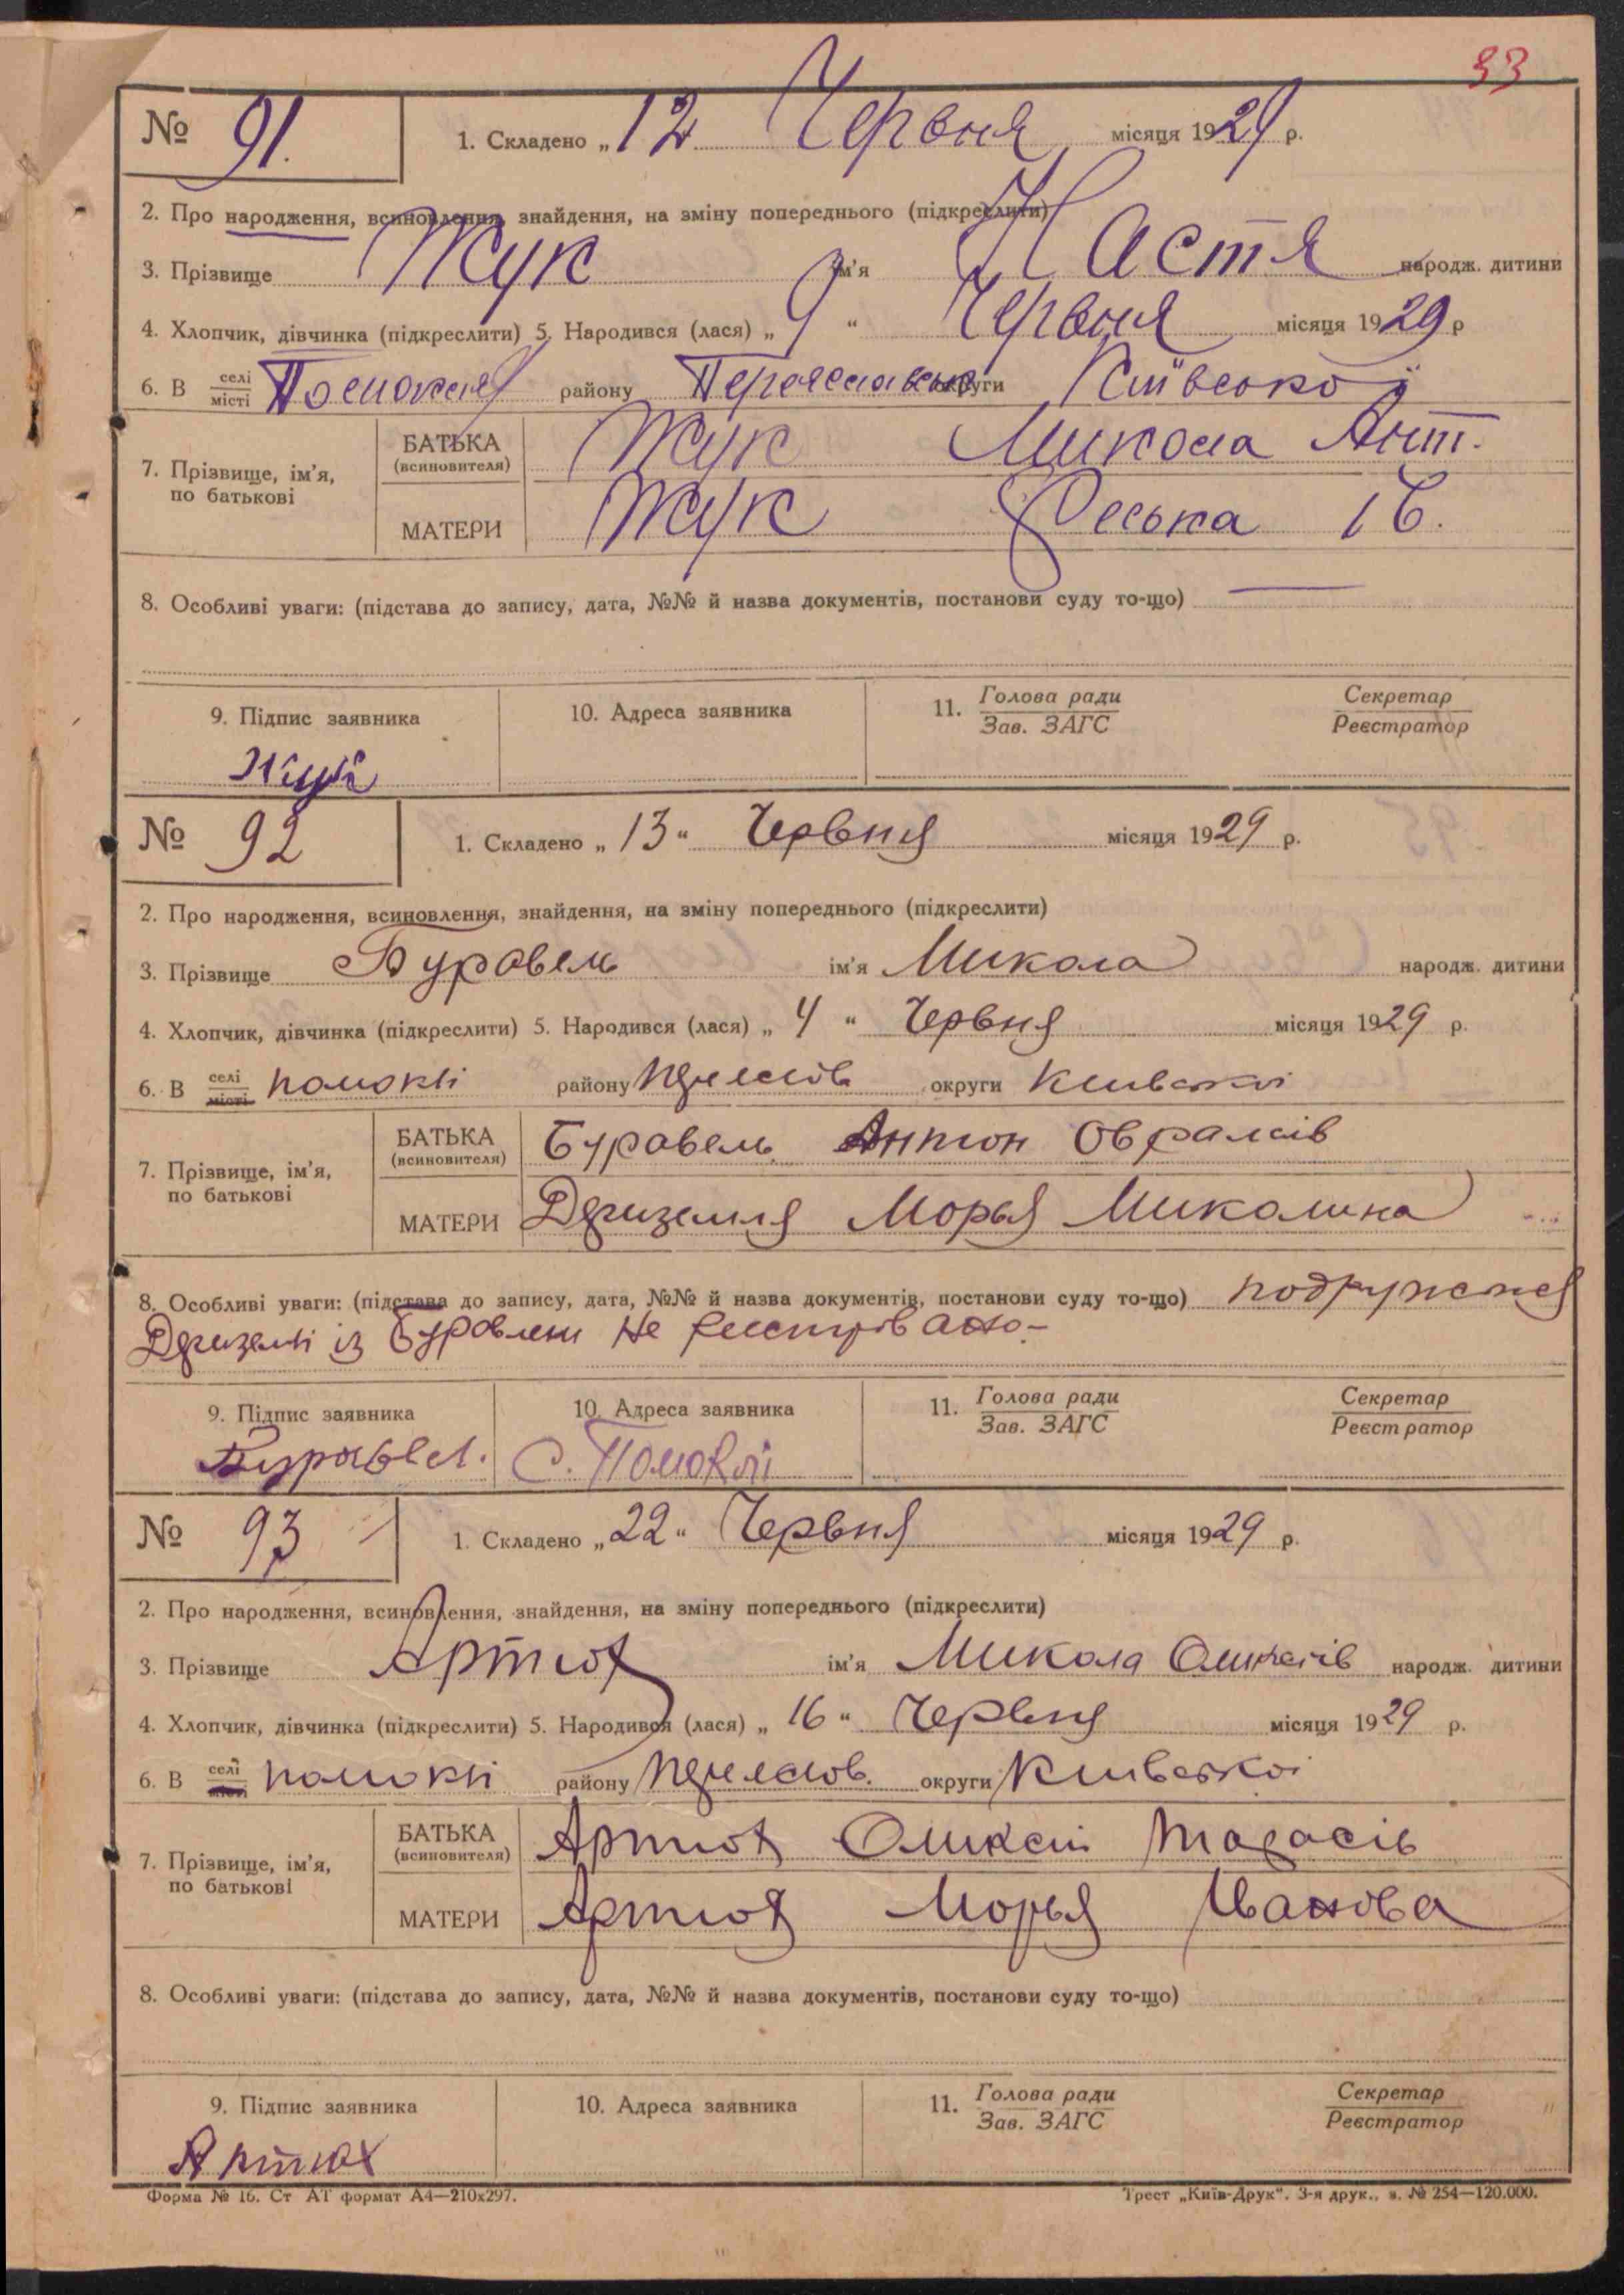 33
№ 91.
1. Складено „12 Червня місяця 1929 р.
2. Про народження, всиновлення, знайдення, на зміну попереднього (підкреслити)
3. Прізвище Жук ім'я Настя народж. дитини
4. Хлопчик, дівчинка (підкреслити) 5. Народився (лася) „9" Червня місяця 1929 р
6. В селі/місті Помоклях району Переяславськ округи Київської
7. Прізвище, ім'я, по батькові
БАТЬКА (всиновителя) Жук Микола Ант.
МАТЕРИ Жук Феська
8. Особливі уваги: (підстава до запису, дата, №№ й назва документів, постанови суду то-що) —
9. Підпис заявника 10. Адреса заявника 11. Голова ради/Зав. ЗАГС Секретар/Реєстратор
Жук
№ 92
1. Складено „13" Червня місяця 1929 р.
2. Про народження, всиновлення, знайдення, на зміну попереднього (підкреслити)
3. Прізвище Буравель ім'я Микола народж. дитини
4. Хлопчик, дівчинка (підкреслити) 5. Народився (лася) „4" Червня місяця 1929 р.
6. В селі/місті помоклі району округи Київської
7. Прізвище, ім'я, по батькові
БАТЬКА (всиновителя) Буравель Антон
МАТЕРИ Дериземля Морья Миколина
8. Особливі уваги: (підстава до запису, дата, №№ й назва документів, постанови суду то-що) подружжя
Дериземлі із Буравлем не реєстрівано.–
9. Підпис заявника 10. Адреса заявника 11. Голова ради/Зав. ЗАГС Секретар/Реєстратор
Буравел. С. Помоклі
№ 93
1. Складено „22" Червня місяця 1929 р.
2. Про народження, всиновлення, знайдення, на зміну попереднього (підкреслити)
3. Прізвище Артюх ім'я Микола Оликсіів народж. дитини
4. Хлопчик, дівчинка (підкреслити) 5. Народився (лася) „16" Червня місяця 1929 р.
6. В селі/місті помоклі району округи Київської
7. Прізвище, ім'я, по батькові
БАТЬКА (всиновителя) Артюх Оликсій Тарасів
МАТЕРИ Артюх Морья Іванова
8. Особливі уваги: (підстава до запису, дата, №№ й назва документів, постанови суду то-що)
9. Підпис заявника 10. Адреса заявника 11. Голова ради/Зав. ЗАГС Секретар/Реєстратор
Артюх
Форма № 16. Ст АТ формат А4—210х297. Трест „Київ-Друк". 3-я друк., з. № 254—120.000.